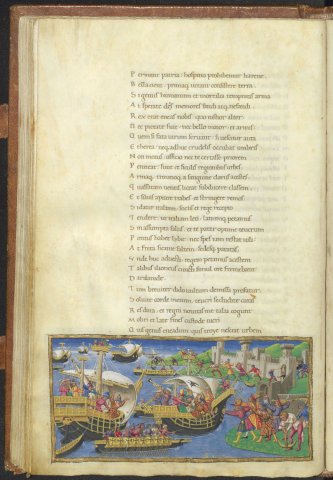 P ermittit patria: hospitio prohibemur harene
B ella cient: primaq; uetant consistere terra.
S i genus humanum et mortalia temnitis arma
A t sperate deos memores fandi atq; nefandi
R ex erat eneas nobis: quo iustior alter
N ec pietate fuit: nec bello maior et armis
Q uem si fata uirum seruant: si uescitur aura
E therea: neq; adhuc crudelibus occubat umbris
N on metus: officio nec te certasse priorem
P eniteat: sunt et siculis regionibus urbes
A rmaq; troianoq; a sanguine clarus acestes
Q uassatam uentis liceat subducere classem
E t siluis aptare trabes: et stringere remos
S i datur italiam: sociis et rege recepto
T endere: ut italiam leti: latiumq; petamus
S in absumpta salus: et te pater optime teucrum
P ontus habet libie: nec spes iam restat iuli
A t freta sicanie saltem: sedesq; paratas
V nde huc aduecti: regemq; petamus acesten
T alibus ilioneus cuncti simul ore fremebant
D ardanide.
T um breuiter dido uultum demissa profatur
S oluite corde metum: teucri secludite curas
R es dura: et regni nouitas me talia cogunt
M oliri: et late fines custode tueri
Q uis genus eneadum: quis troye nesciat urbem